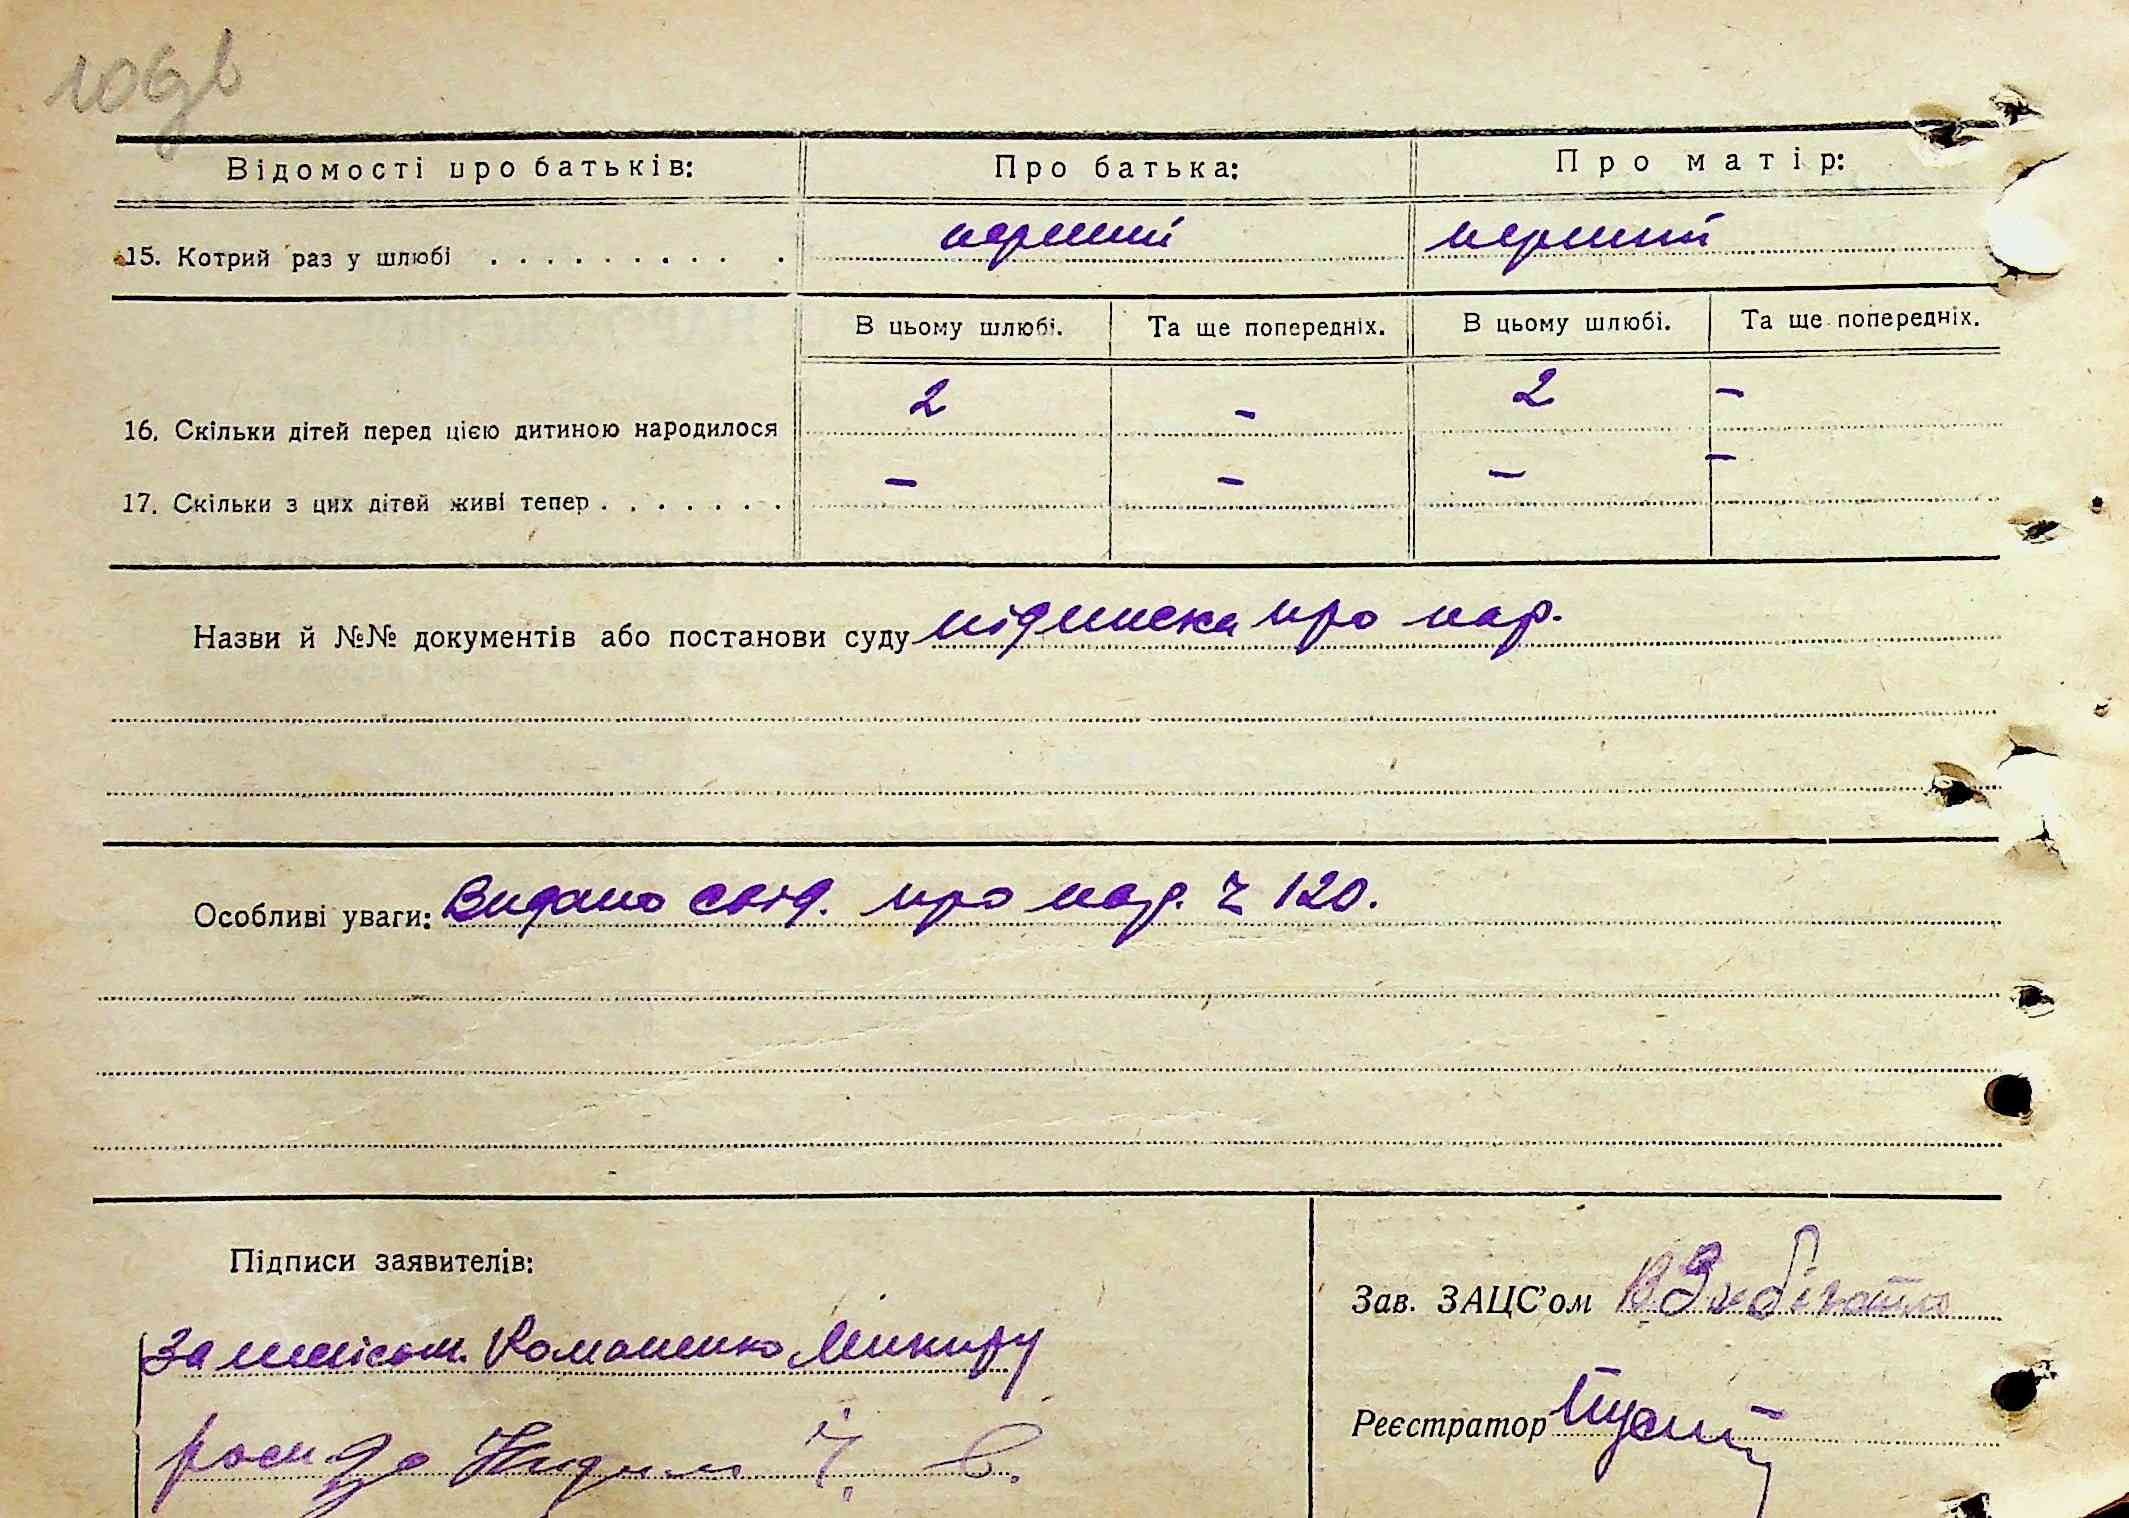 106
Відомості про батьків: Про батька: Про матір:
15. Котрий раз у шлюбі . . . . . . . . . . перший перший
В цьому шлюбі. Та ще попередніх. В цьому шлюбі. Та ще попередніх.
16. Скільки дітей перед цією дитиною народилося 2 – 2 –
17. Скільки з цих дітей живі тепер . . . . . . . – – – –
Назви й №№ документів або постанови суду підписка про нар.
Особливі уваги: Видано свід. про нар. Ч 120.
Підписи заявителів:
Зав. ЗАЦС'ом
Романенко Микиту
Реєстратор